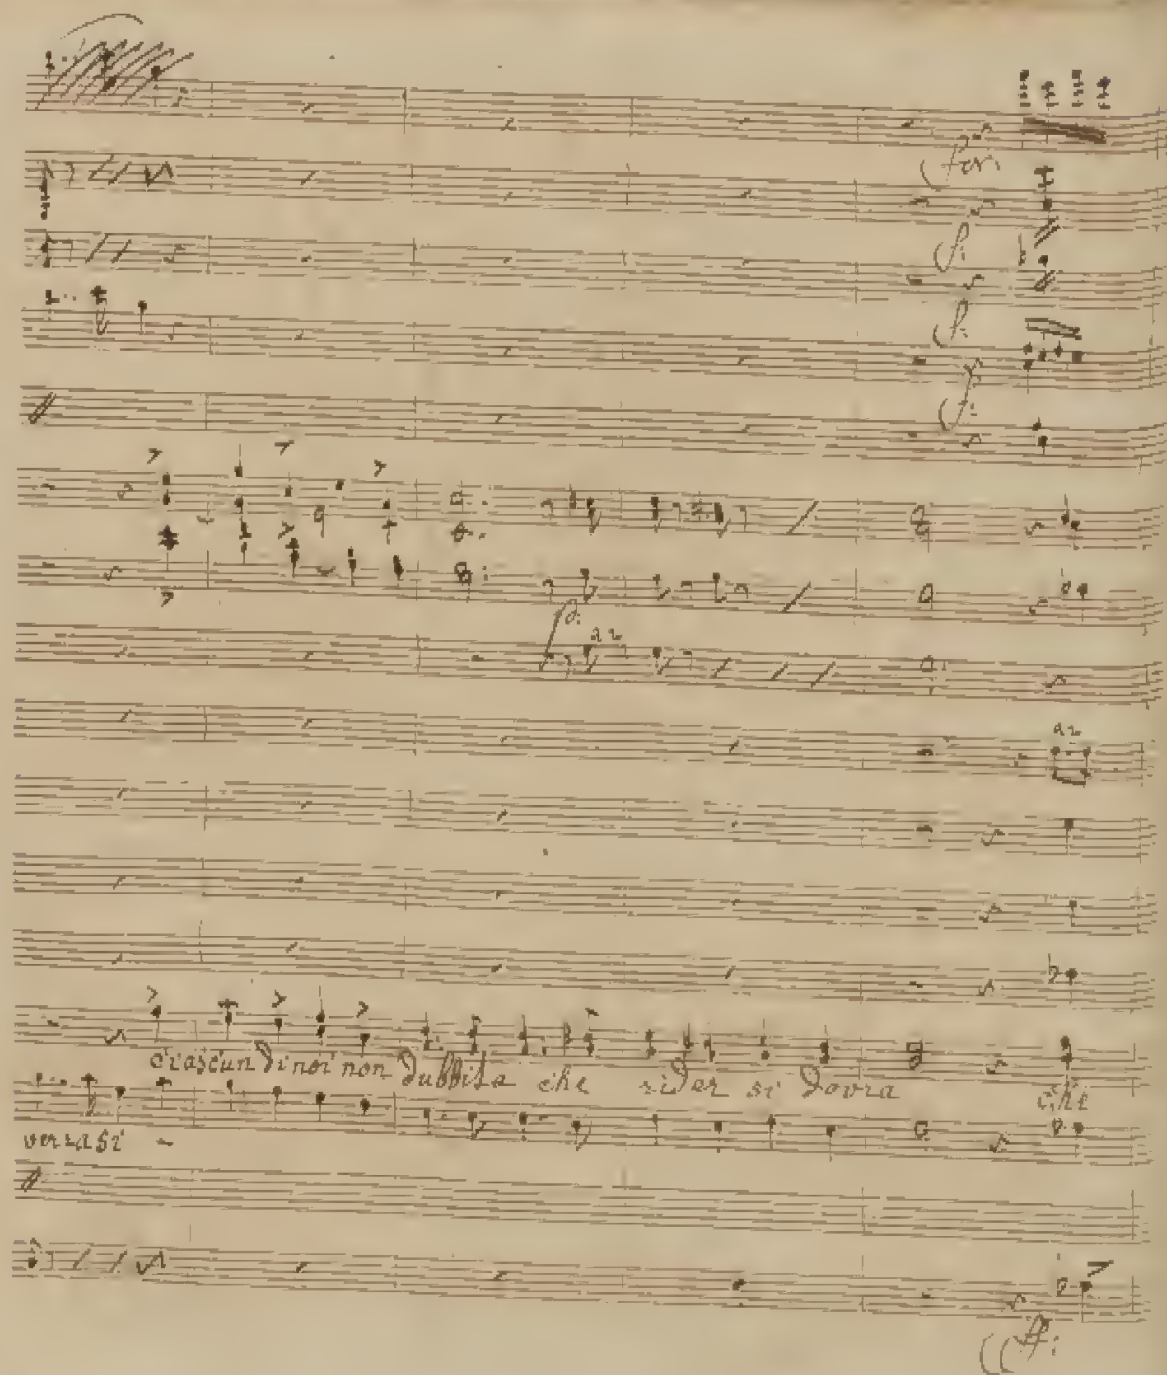 a 2
a 2
ciascun di noi non dubbita che rider si dovra che
verra si